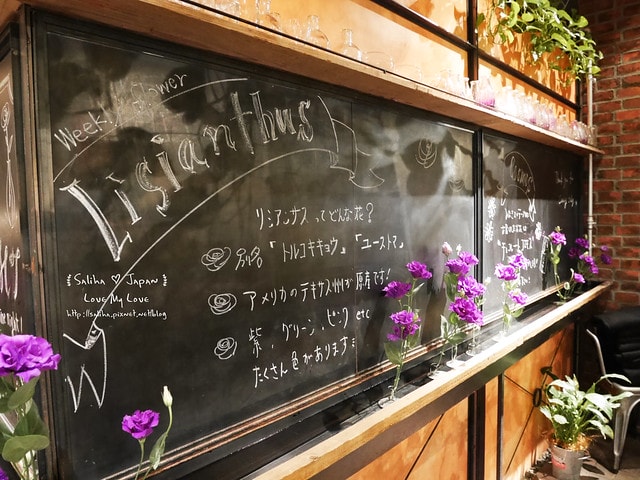 Weekly Flower
Lisianthus
リシアンサスってどんな花?
別名「トルコキキョウ」「ユーストマ」
アメリカのテキサス州が原産です!
紫、グリーン、ピンク etc
たくさん色があります
Saliha ♡ Japan
Love My Love
http://lsaliha.pixnet.net/blog